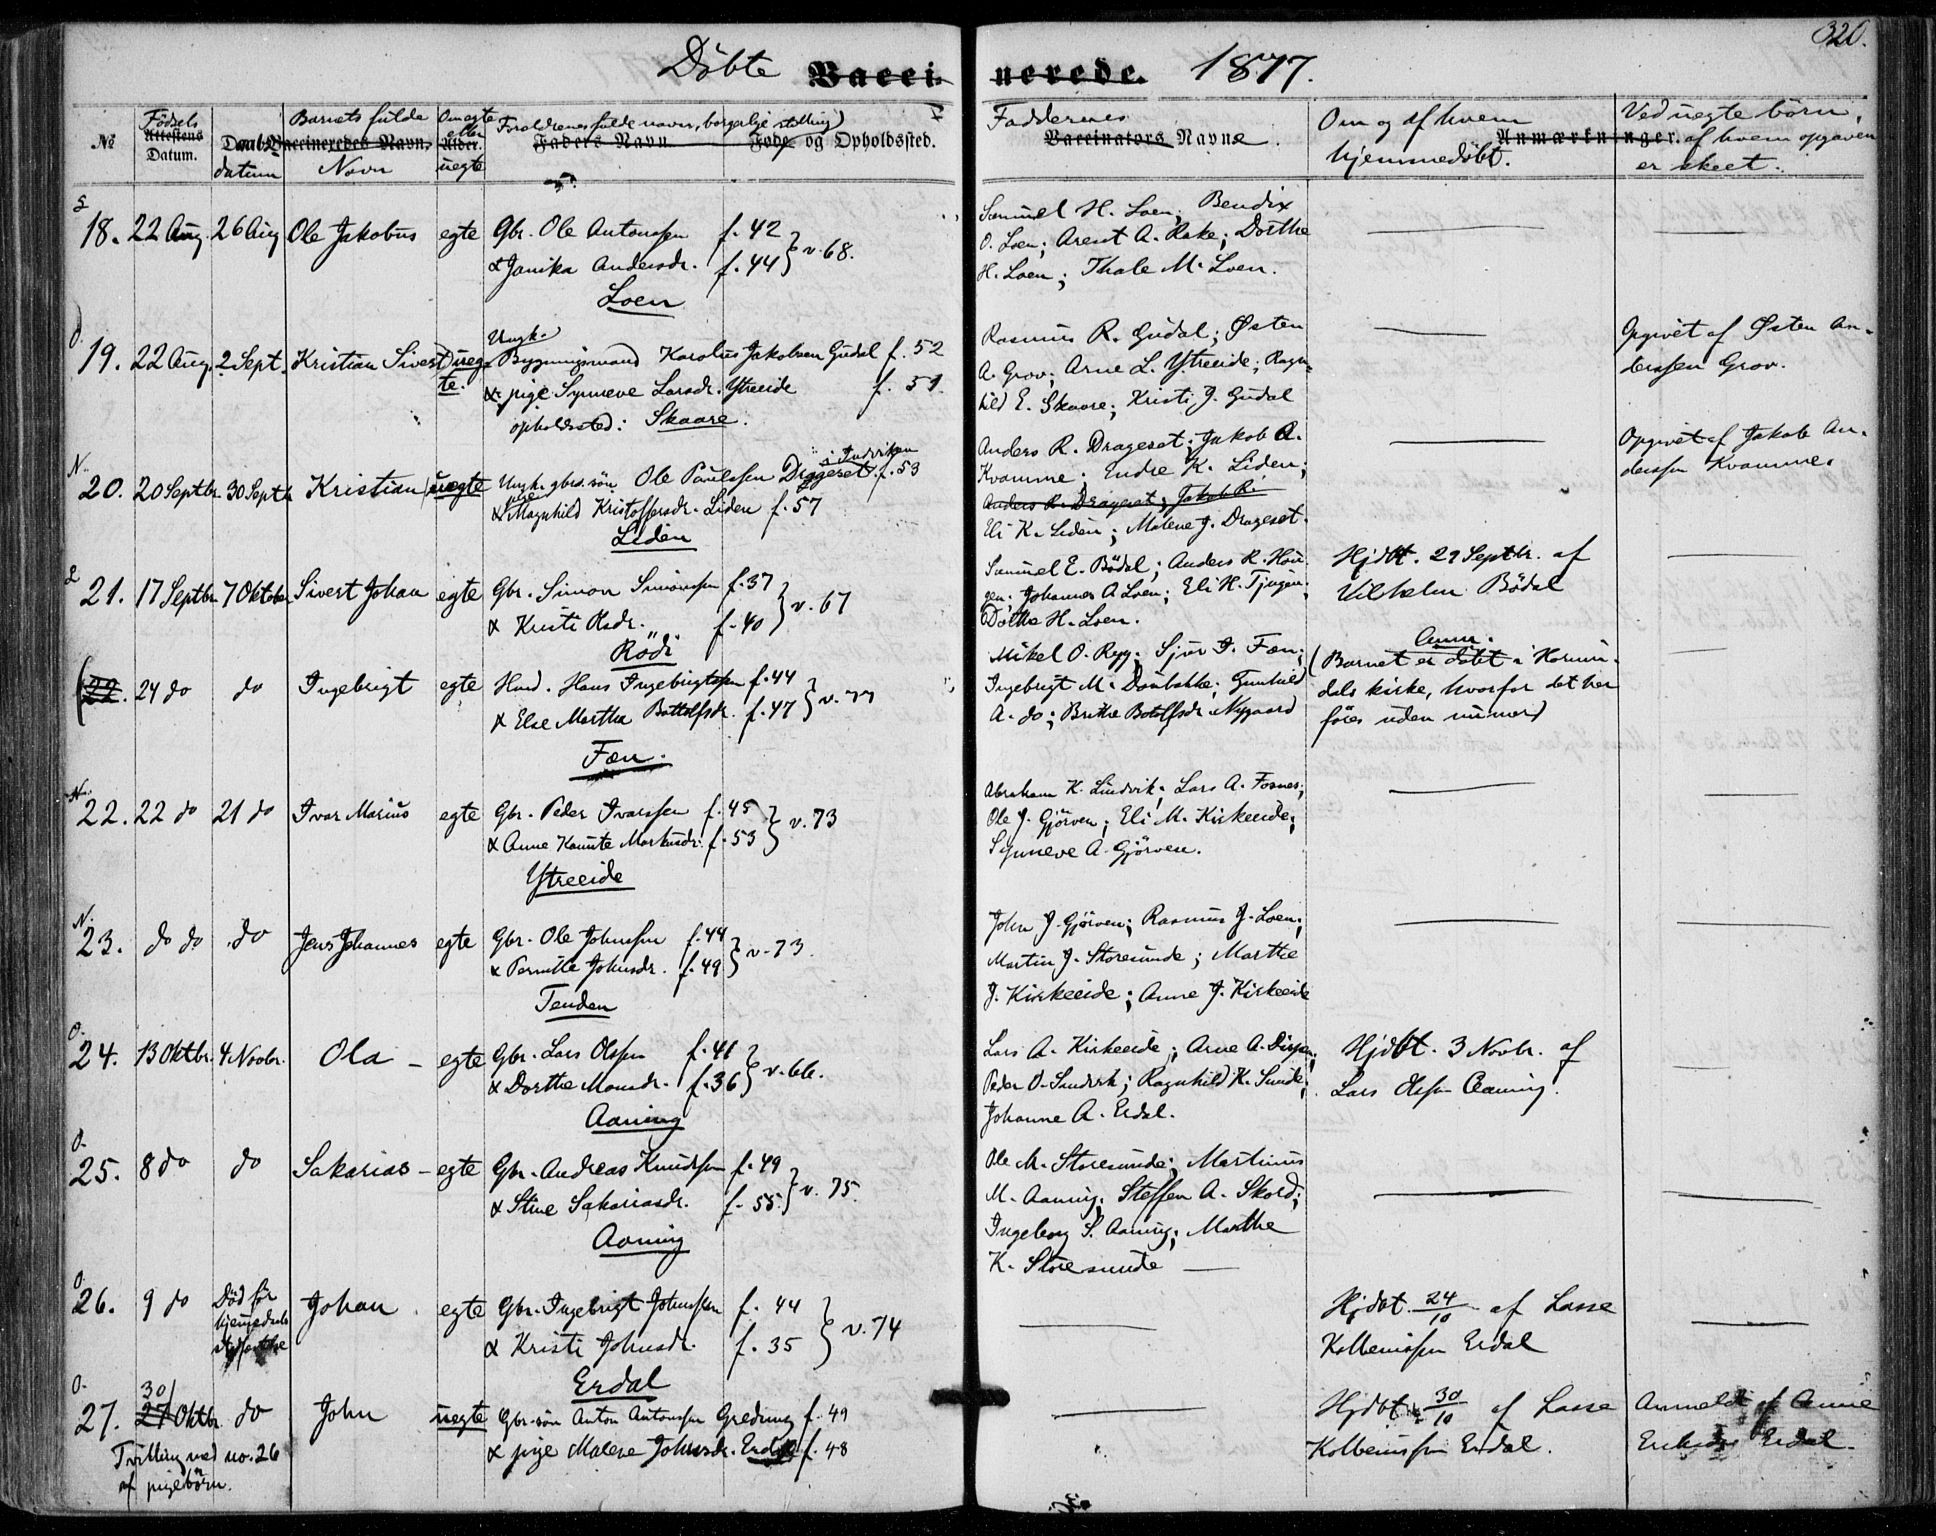 320.
Döbte Vaccinerede. 1877.
№
Fødsels
Attestens
Datum.
Daabs
datum
Barnets fulde
Vaccineredes Navn.
Navn
Om egte
eller
Alder.
uegte
Forældrenes fulde navn, borgerlige stilling
Faders Navn
og Opholdssted.
Faddernes
Vaccinators Navne.
Om og af hvem
hjemmedöbt.
Anmærkninger.
Ved uegte börn,
af hvem opgaven
er skeet.
18. 22 Aug. 26 Aug Ole Jakobus egte Gbr. Ole Antonssen f. 42
& Janika Andersdr. f. 44 } v. 68.
Loen
Samuel H. Loen; Bendix
O. Loen; Arent A. Rake; Dorthe
H. Loen; Thale M. Loen.
19. 22 Aug. 2 Sept. Kristian Sivert uegte.
Ungk.
Bygningsmand Karolus Jakobsen Gudal f. 52
& pige Synneve Larsdr. Ytreeide f. 51.
opholdssted: Skaare.
Rasmus R. Gudal; Østen
A. Grov; Arne L. Ytreeide; Ragn-
hild E. Skaare; Kristi J. Gudal
Opgivet af Østen An-
derssen Grov.
N.
20. 20 Septbr. 30 Septbr Kristian uegte Ungk. gbrd.sön Ole Paulssen Diggeset i Indviken f. 53
& Magnhild Kristoffersdr. Liden f. 57
Liden
Anders R. Drageset; Jakob A.
Kvamme; Endre K. Liden;
Anders R. Drageset; Jakob R.
Eli K. Liden; Malene J. Drageset.
Opgivet af Jakob An-
derssen Kvamme.
21. 17 Septbr. 7 Oktober Sivert Johan egte Gbr. Simon Simonssen f. 37
& Kristi Olsdr. f. 40 } v. 67
Rödi
Samuel E. Bödal; Anders R. Hau-
gen; Johannes A Loen; Eli H. Tjugen;
Dorthe H. Loen.
Hjdbt. 29 Septbr. af
Vilhelm Bödal
(22. 24 do do Ingebrigt egte Husm. Hans Ingebrigtssen f. 44
& Else Martha Bottolfsdr. f. 47 } v. 77
Fæn.
Mikel O. Ryg; Sjur I. Fæn;
Ingebrigt M. Doubakke; Gunhild
A. do; Brithe Botolfsdr Nygaard
Anm.
(Barnet er döbt i Hornin-
dals kirke, hvorfor det her
föres uden numer)
N.
22. 22 do 21 do Ivar Marius egte Gbr. Peder Ivarssen f. 45
& Anne Kaunte Markusdr. f. 53 } v. 73
Ytreeide
Abraham K. Sundvik; Lars A. Fosnes;
Ole J. Gjörven; Eli M. Kirkeeide;
Synneve A. Gjörven.
N.
23. do do do Jens Johannes egte Gbr. Ole Johnssen f. 44
& Pernille Johnsdr. f. 49 } v. 73.
Tenden
John J. Gjörven; Rasmus J. Loen;
Martin J. Storesunde; Marthe
J. Kirkeeide; Anne J. Kirkeeide
O.
24. 13 Oktbr. 4 Novbr. Ola egte Gbr. Lars Olssen f. 41
& Dorthe Monsdr. f. 36 } v. 66.
Aaning
Lars A. Kirkeeide; Arne A. Dispen;
Peder O. Sundvik; Ragnhild K. Sunde;
Johanne A. Erdal.
Hjdbt. 3 Novbr. af
Lars Olssen Aaning.
O.
25. 8 do do Sakarias egte Gbr. Andreas Knudssen f. 49
& Stine Sakariasdr. f. 55 } v. 75.
Aaning
Ole M. Storesunde; Martinus
M. Aaning; Steffen A. Skord;
Ingeborg S. Aaning; Marthe
K. Storesunde
O.
26. 9 do Död för
Johan egte Gbr. Ingebrigt Johnssen f. 44
& Kristi Johnsdr. f. 35 } v. 74
Erdal
Hjdbt. 24/10 af Lasse
Kolbeinssen Erdal
O.
27. 30/ 27 Oktbr. do John uegte Gbr.sön Anton Antonssen Gredung f. 49
& pige Malene Johnsdr. Erdal f. 48
Tvilling med no. 26
af pigebörn.
Hjdbt. 30/10 af Lasse
Kolbeinssen Erdal.
Anmeldt af Anne
Erdal.